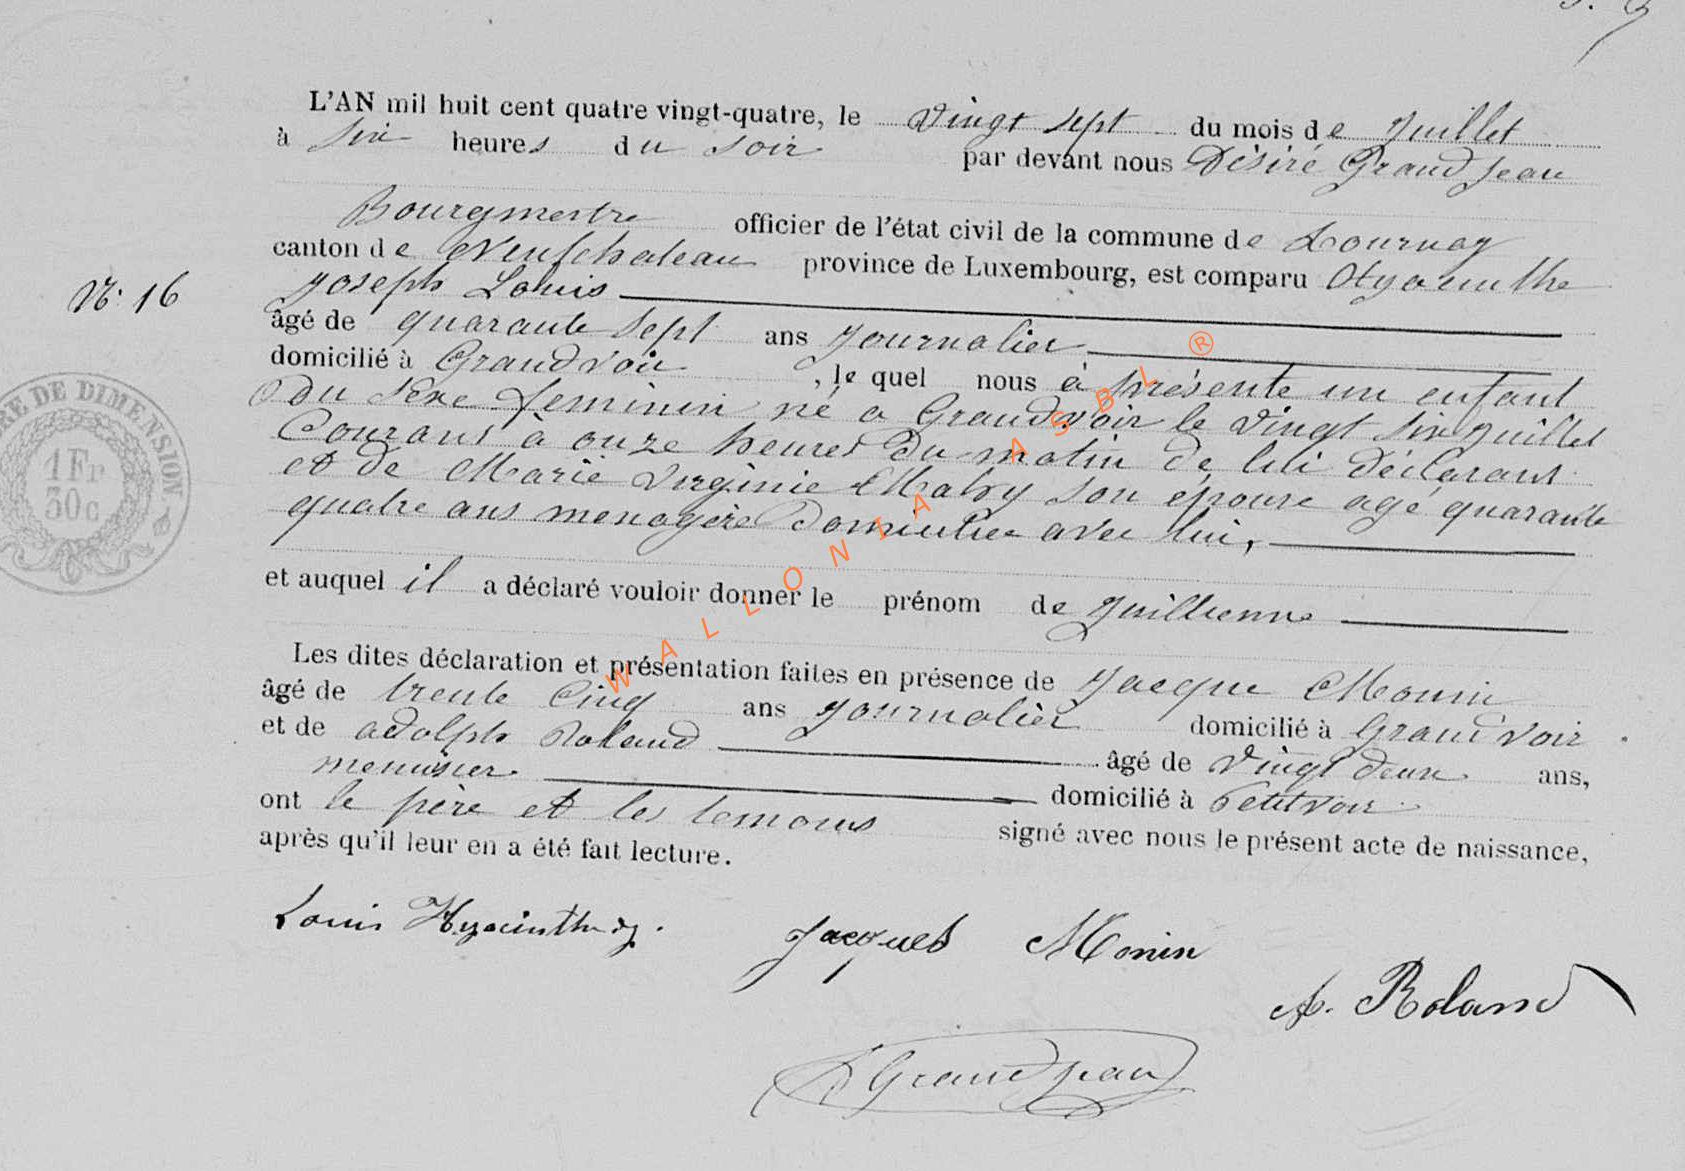 L'AN mil huit cent quatre vingt-quatre, le vingt sept du mois de Juillet
à six heures du soir par devant nous Désiré Grandjean
Bourgmestre officier de l'état civil de la commune de Tournay
canton de Neufchateau province de Luxembourg, est comparu Hyacinthe
Joseph Louis
N: 16
âgé de quarante sept ans Journalier
domicilié à Grandvoir, le quel nous à présenté un enfant
Du Sexe feminin né a Grandvoir le vingt six Juillet
Courant à onze heures Du matin de lui déclarant
et de Marie Virginie Mabry son épouse agé quarante
quatre ans menagère Domiciliee avec lui,
et auquel il a déclaré vouloir donner le prénom de Juillienne
Les dites déclaration et présentation faites en présence de Jacque Monin
âgé de trente Cinq ans Journalier domicilié à Grandvoir
et de adolph Roland âgé de vingt deux ans,
menusier domicilié à Petitvoir
ont le père et les temoins signé avec nous le présent acte de naissance,
après qu'il leur en a été fait lecture.
Louis Hyacinthe
Jacques Monin
A. Roland
D Grandjean
RE DE DIMENSION
1 Fr
30c
WALLONIA ASBL ®